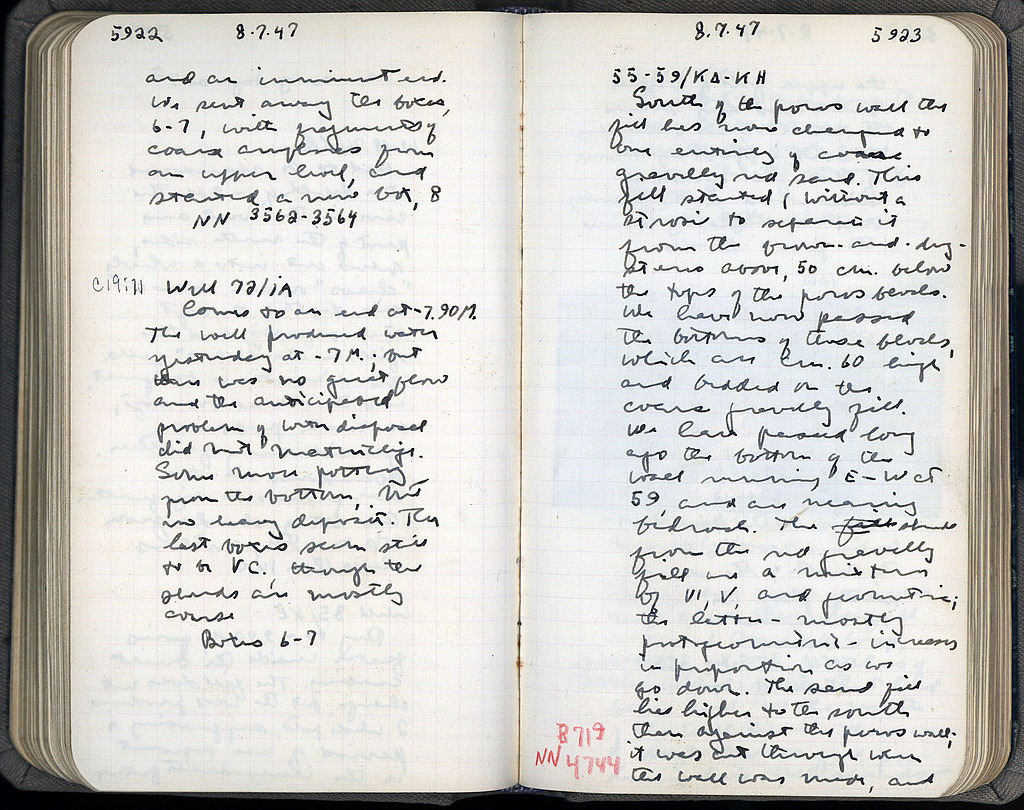 5922 8.7.47
and an imminent end.
We sent away the boxes,
6-7, with fragments of
coarse amphoras from
an upper level, and
started a new box, 8
NN 3562-3564
C19:11 Well 72/ΙΑ
Comes to an end at -7.90 M.
The well produced water
yesterday at -7 M.; but
there was no great flow
and the anticipated
problem of water disposal
did not materialize.
Some more pottery
from the bottom, but
no heavy deposit. The
last boxes seem still
to be V C., though the
sherds are mostly
coarse
Boxes 6-7
8.7.47 5923
55-59/ΚΔ-ΚΗ
South of the poros wall the
fill has now changed to
one entirely of coarse
gravelly red sand. This
fill started (without a
strosis to separate it
from the brown-and-dug-
above, 50 cm. below
the tops of the poros blocks.
We have now passed
the bottoms of these blocks,
which are cm. 60 high
and bedded on the
coarse gravelly fill.
We have passed long
ago the bottom of the
wall running E-W at
59, and are nearing
bedrock. The fill sherds
from the red gravelly
fill are a mixture
of VI, V, and geometric;
the latter - mostly
protogeometric - increases
in proportion as we
go down. The sand fill
lies higher to the south
than against the poros wall;
it was cut through when
the wall was made, and
8719
NN 4744